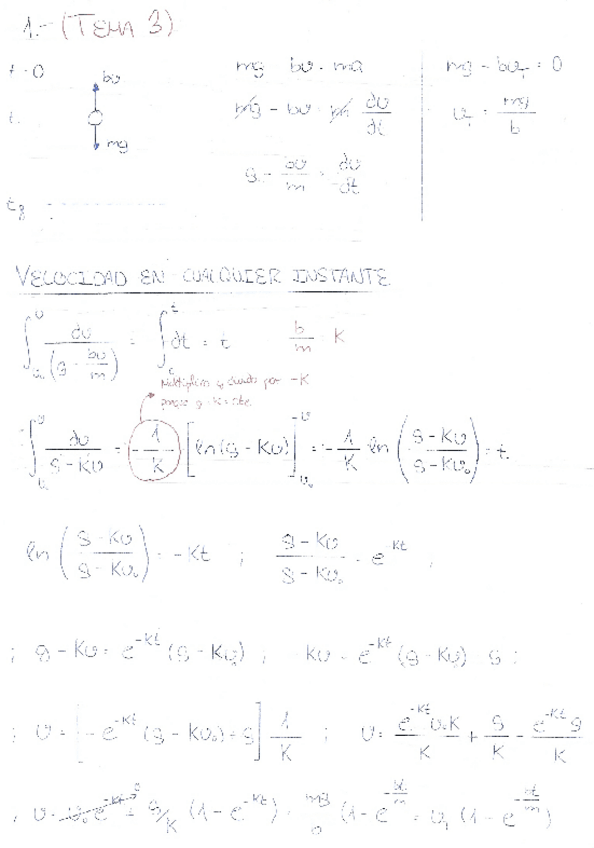 1.- (TEMA 3)
t = 0
bv
mg - bv = ma
mg - bv_T = 0
t
mg
mg - bv = m dv/dt
v_T = mg/b
g - bv/m = dv/dt
VELOCIDAD EN CUALQUIER INSTANTE
∫ dv/(g - bv/m) = ∫ dt = t    b/m = K
Multiplico y divido por -K
∫ dv/(g - Kv) = -1/K [ln(g - Kv)] = -1/K ln((g - Kv)/(g - Kv₀)) = t.
ln((g - Kv)/(g - Kv₀)) = -Kt ; (g - Kv)/(g - Kv₀) = e^(-Kt) ;
; g - Kv = e^(-Kt) (g - Kv₀) ; -Kv = e^(-Kt) (g - Kv₀) - g ;
; v = [-e^(-Kt) (g - Kv₀) + g] 1/K ; v = e^(-Kt) v₀K/K + g/K - e^(-Kt) g/K
; v = v₀e^(-Kt) + g/K (1 - e^(-Kt)) = mg/b (1 - e^(-bt/m)) = v_T (1 - e^(-bt/m))